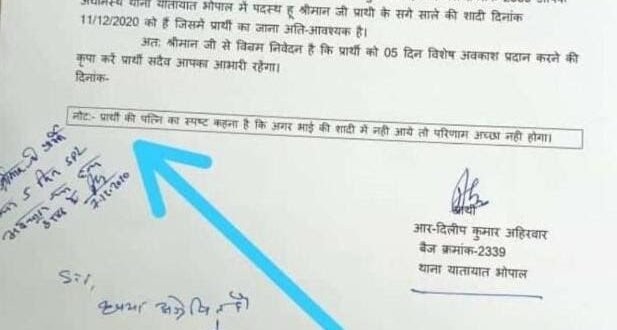 अधीनस्थ थाना यातायात भोपाल में पदस्थ हू श्रीमान जी प्रार्थी के सगे साले की शादी दिनांक
11/12/2020 को हैं जिसमें प्रार्थी का जाना अति-आवश्यक है।
अतः श्रीमान जी से विन्रम निवेदन है कि प्रार्थी को 05 दिन विशेष अवकाश प्रदान करने की
कृपा करें प्रार्थी सदैव आपका आभारी रहेगा।
दिनांक-
नोटः- प्रार्थी की पत्नि का स्पष्ट कहना है कि अगर भाई की शादी में नही आये तो परिणाम अच्छा नही होगा।
5 दिन
7-12-2020
प्रार्थी
आर-दिलीप कुमार अहिरवार
बैज क्रमांक-2339
थाना यातायात भोपाल
Sir,
कृपया